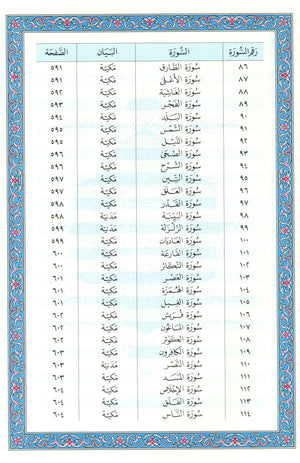 رَقمُ السُّورَة السُّورَة البَيَان الصَّفحَة
٨٦ سُورَة الطَّارق مَكيّة ٥٩١
٨٧ سُورَة الأعْلى مَكيّة ٥٩١
٨٨ سُورَة الغَاشِيَة مَكيّة ٥٩٢
٨٩ سُورَة الفَجْر مَكيّة ٥٩٣
٩٠ سُورَة البَلَد مَكيّة ٥٩٤
٩١ سُورَة الشَّمْس مَكيّة ٥٩٥
٩٢ سُورَة اللَّيْل مَكيّة ٥٩٥
٩٣ سُورَة الضّحَى مَكيّة ٥٩٦
٩٤ سُورَة الشَّرْح مَكيّة ٥٩٦
٩٥ سُورَة التِّين مَكيّة ٥٩٧
٩٦ سُورَة العَلَق مَكيّة ٥٩٧
٩٧ سُورَة القَدْر مَكيّة ٥٩٨
٩٨ سُورَة البَيّنَة مَدنيّة ٥٩٨
٩٩ سُورَة الزَّلْزَلة مَدنيّة ٥٩٩
١٠٠ سُورَة العَاديَات مَكيّة ٥٩٩
١٠١ سُورَة القَارعَة مَكيّة ٦٠٠
١٠٢ سُورَة التَّكاثُر مَكيّة ٦٠٠
١٠٣ سُورَة العَصْر مَكيّة ٦٠١
١٠٤ سُورَة الهُمَزة مَكيّة ٦٠١
١٠٥ سُورَة الفِيل مَكيّة ٦٠١
١٠٦ سُورَة قُرَيش مَكيّة ٦٠٢
١٠٧ سُورَة المَاعُون مَكيّة ٦٠٢
١٠٨ سُورَة الكَوثر مَكيّة ٦٠٢
١٠٩ سُورَة الكَافِرون مَكيّة ٦٠٣
١١٠ سُورَة النَّصْر مَدنيّة ٦٠٣
١١١ سُورَة المَسَد مَكيّة ٦٠٣
١١٢ سُورَة الإخْلاص مَكيّة ٦٠٤
١١٣ سُورَة الفَلَق مَكيّة ٦٠٤
١١٤ سُورَة النَّاس مَكيّة ٦٠٤